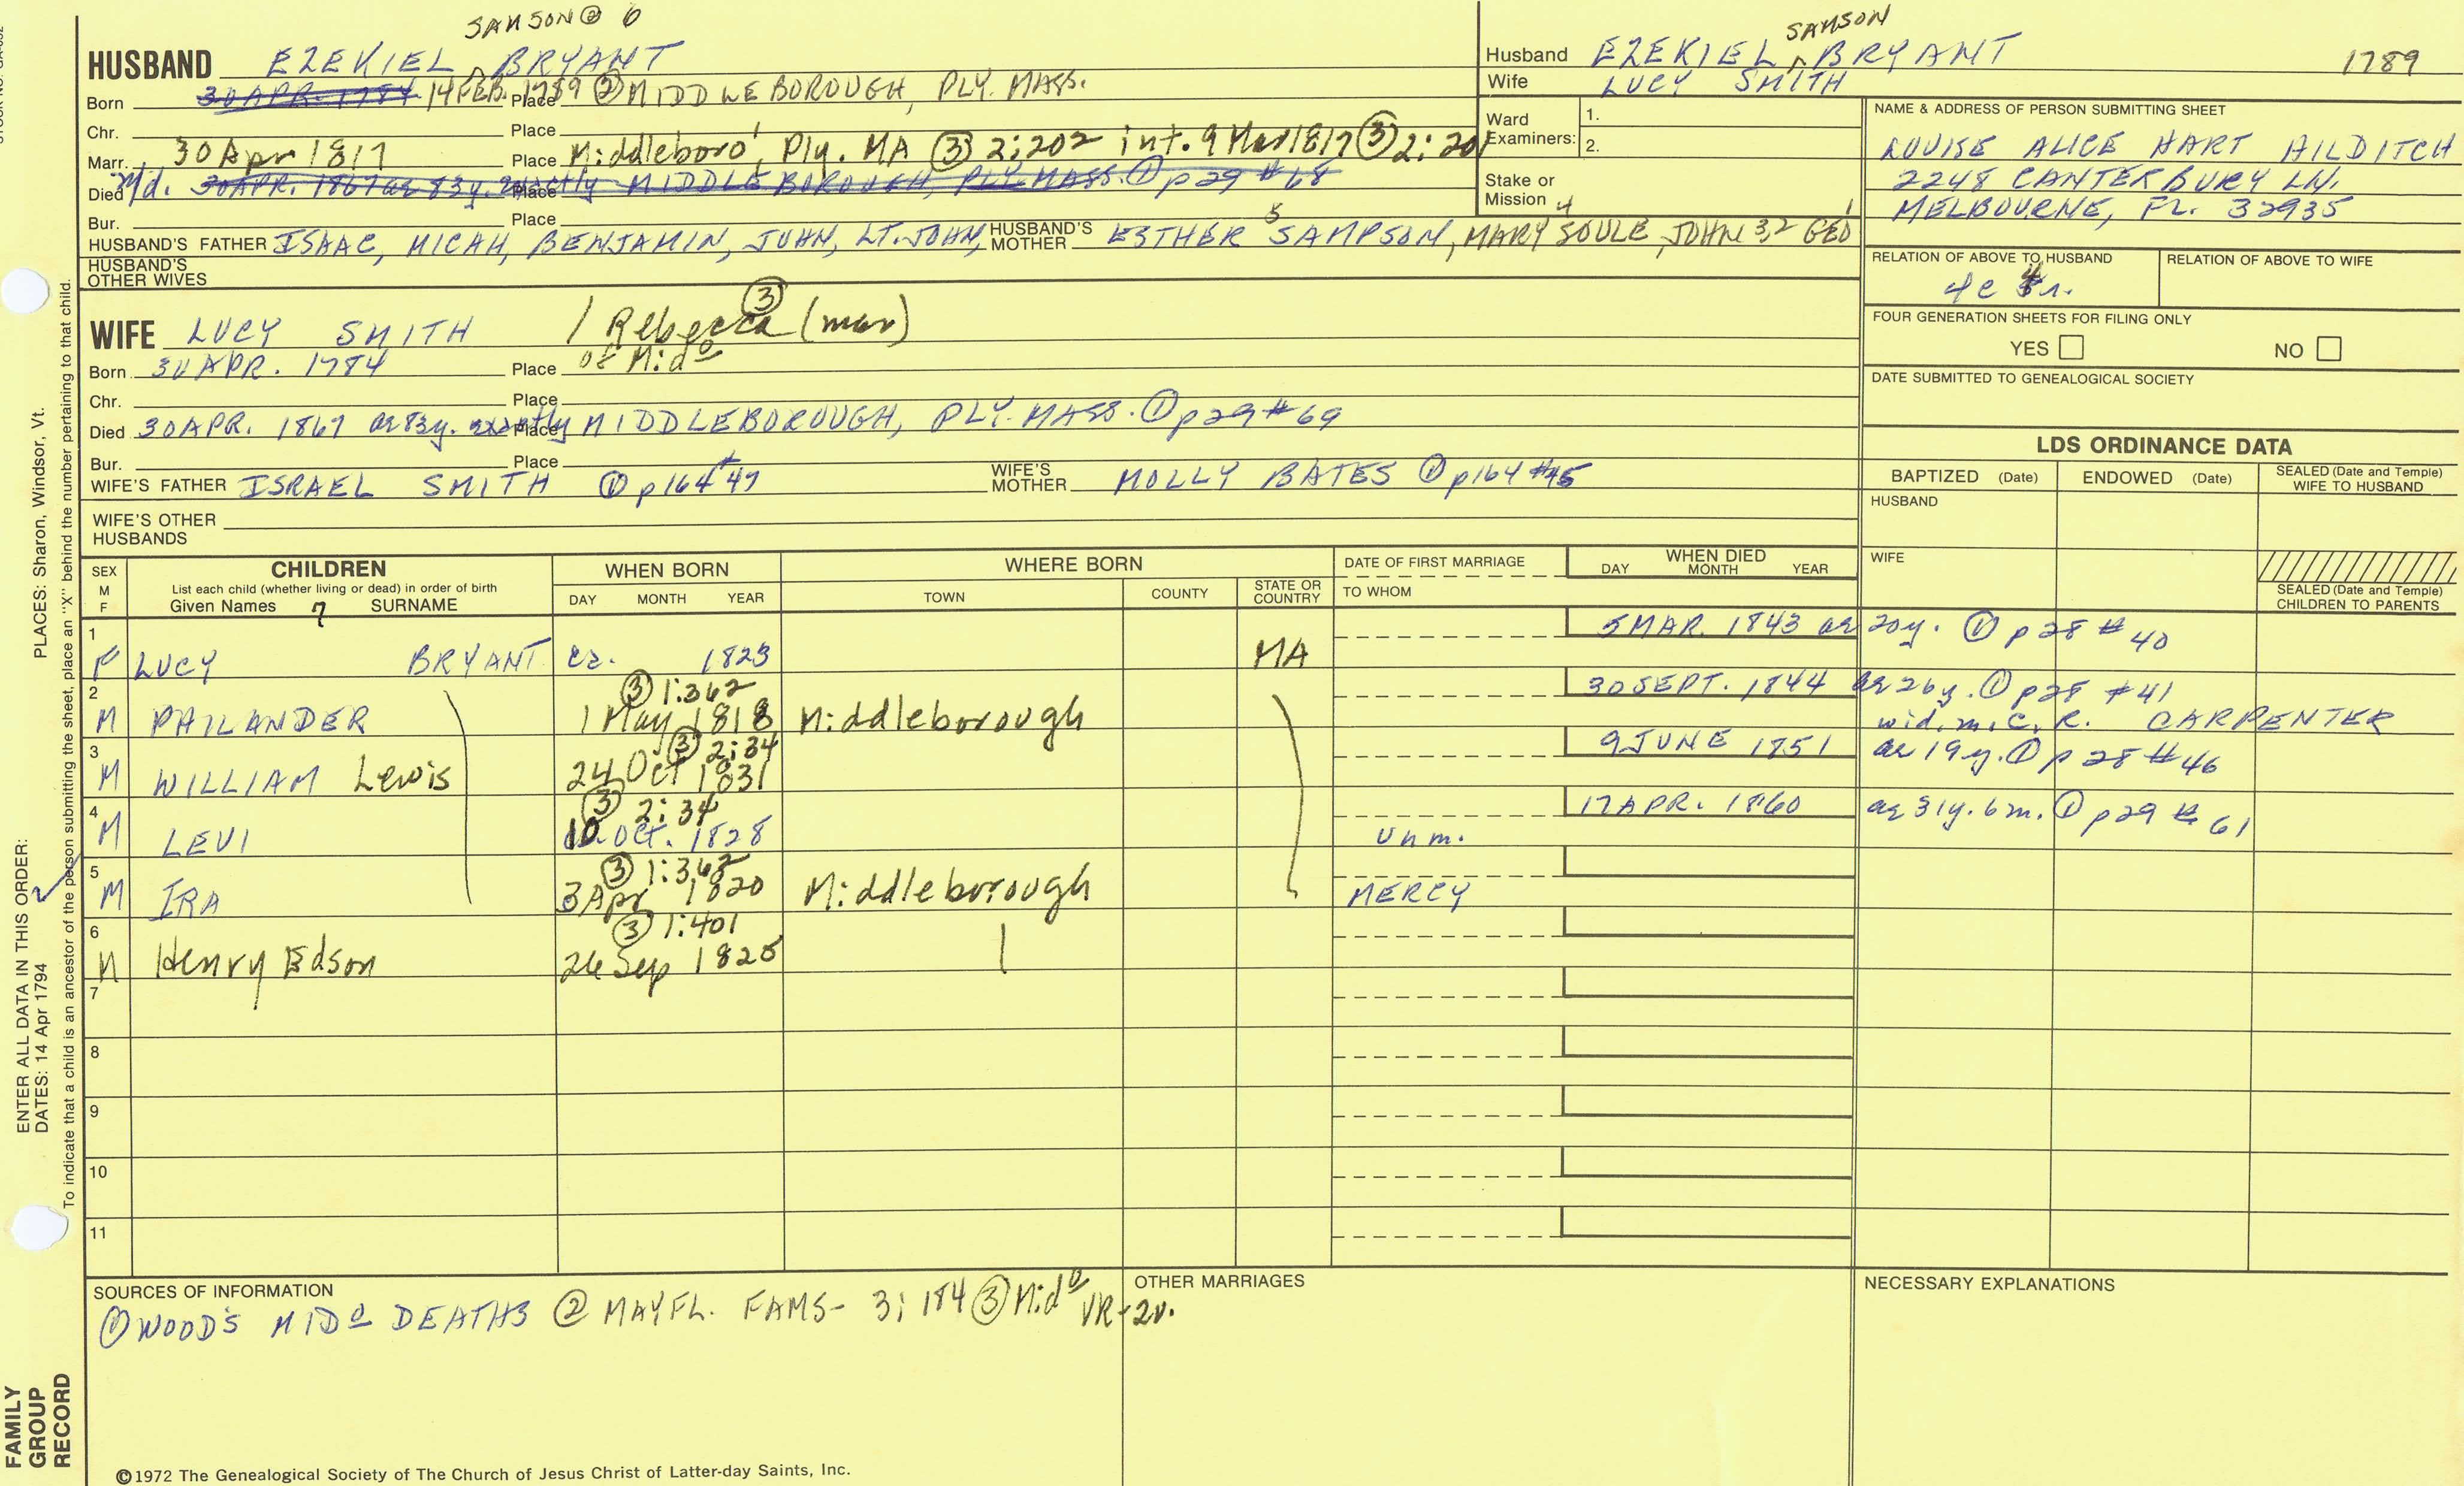 SAMSON ② 6
HUSBAND EZEKIEL ^ BRYANT
Born 30 APR. 1784 14 FEB. 1789 Place ② MIDDLEBOROUGH, PLY. MASS.
Chr. Place
Marr. 30 Apr 1817 Place Middleboro', Ply. MA ③ 2:202 int. 9 Mar 1817 ③ 2:201
Died 30 APR. 1867 ae 83y. exactly Place MIDDLEBOROUGH, PLY. MASS. ① p29 #68
Bur. Place
HUSBAND'S FATHER ISAAC, MICAH, BENJAMIN, JOHN, LT. JOHN, HUSBAND'S MOTHER ESTHER 5 SAMPSON, 4 MARY SOULE, JOHN 3, 2 GEO 1
HUSBAND'S OTHER WIVES
WIFE LUCY SMITH / Rebecca ③ (mar)
Born 30 APR. 1784 Place of Midº
Chr. Place
Died 30 APR. 1867 ae 83y. exactly Place MIDDLEBOROUGH, PLY. MASS. ① p29 #69
Bur. Place
WIFE'S FATHER ISRAEL SMITH ① p164 #47 WIFE'S MOTHER MOLLY BATES ① p164 #45
WIFE'S OTHER HUSBANDS
SAMSON
Husband EZEKIEL ^ BRYANT 1789
Wife LUCY SMITH
Ward Examiners: 1.
2.
Stake or Mission
NAME & ADDRESS OF PERSON SUBMITTING SHEET
LOUISE ALICE HART HILDITCH
2248 CANTERBURY LN.
MELBOURNE, FL. 32935
RELATION OF ABOVE TO HUSBAND RELATION OF ABOVE TO WIFE
4c 4r.
FOUR GENERATION SHEETS FOR FILING ONLY
YES NO
DATE SUBMITTED TO GENEALOGICAL SOCIETY
LDS ORDINANCE DATA
BAPTIZED (Date) ENDOWED (Date) SEALED (Date and Temple) WIFE TO HUSBAND
HUSBAND
WIFE
SEALED (Date and Temple) CHILDREN TO PARENTS
SEX M F CHILDREN WHEN BORN WHERE BORN DATE OF FIRST MARRIAGE WHEN DIED
List each child (whether living or dead) in order of birth
Given Names 7 SURNAME DAY MONTH YEAR TOWN COUNTY STATE OR COUNTRY TO WHOM DAY MONTH YEAR
1 5 MAR. 1843 ae 20y. ① p 28 # 40
F LUCY BRYANT ca. 1823 MA
2 ③ 1:362 30 SEPT. 1844 ae 26y. ① p28 #41
M PHILANDER 1 May 1818 Middleborough wid. m. C. R. CARPENTER
3 ③ 2:34 9 JUNE 1851 ae 19y. ① p 28 #46
M WILLIAM Lewis 24 Oct 1831
4 ③ 2:34 17 APR. 1860 ae 31y. 6m. ① p29 # 61
M LEVI 10 OCT. 1828 Unm.
5 ③ 1:362
M IRA 3 Apr 1820 Middleborough MERCY
6 ③ 1:401
M Henry Edson 26 Sep 1825
7
8
9
10
11
SOURCES OF INFORMATION OTHER MARRIAGES NECESSARY EXPLANATIONS
① WOOD'S MIDº DEATHS ② MAYFL. FAMS- 3: 184 ③ Midº VR-2v.
©1972 The Genealogical Society of The Church of Jesus Christ of Latter-day Saints, Inc.
PLACES: Sharon, Windsor, Vt.
ENTER ALL DATA IN THIS ORDER:
DATES: 14 Apr 1794
To indicate that a child is an ancestor of the person submitting the sheet, place an "X" behind the number pertaining to that child.
FAMILY
GROUP
RECORD